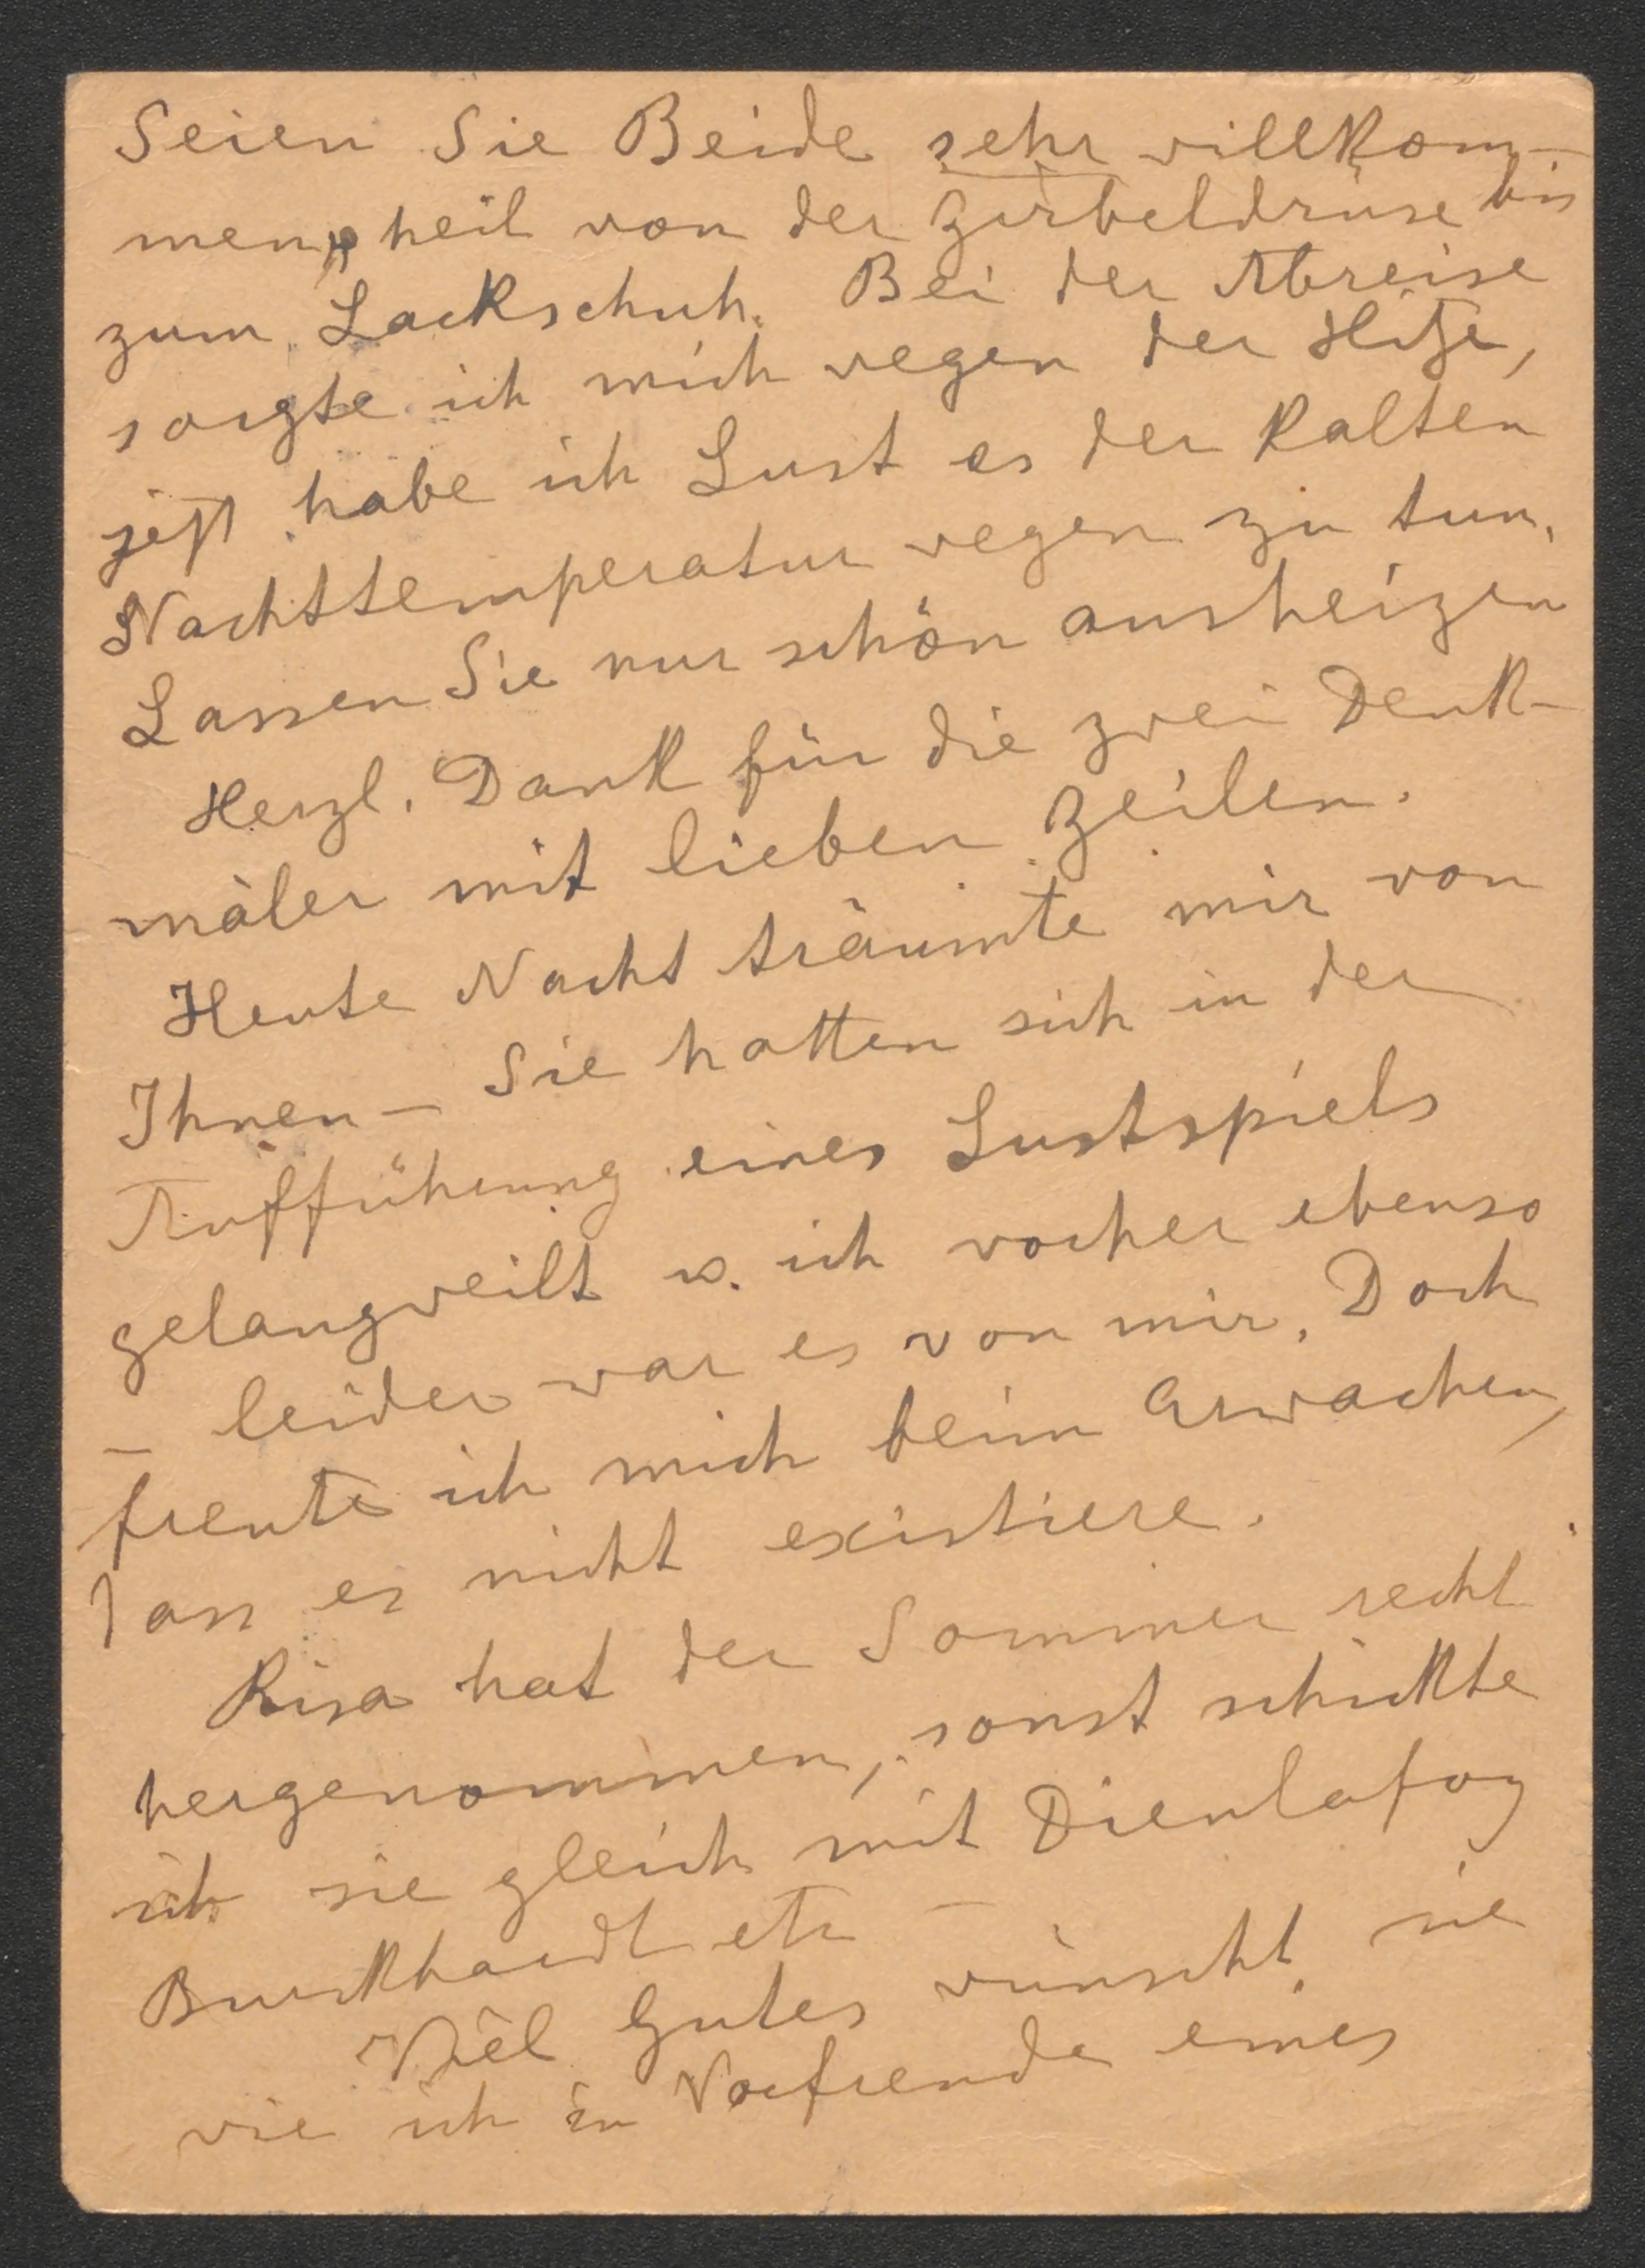 Seien Sie Beide sehr willkom-
men, heil von der Zirbeldrüse bis
zum Lackschuh. Bei der Abreise
sorgte ich mich wegen der Hitze,
jetzt habe ich Lust es der kalten
Nachttemperatur wegen zu tun.
Lassen Sie nur schön ausheizen
Herzl. Dank für die zwei Denk-
mäler mit lieben Zeilen.
Heute Nacht träumte mir von
Ihnen – Sie hatten sich in der
Aufführung eines Lustspiels
gelangweilt u. ich vorher ebenso
– leider war es von mir. Doch
freute ich mich beim Erwachen,
dass es nicht existiere.
Risa hat der Sommer recht
hergenommen, sonst schickte
ich sie gleich mit Dieulafoy
Burckhardt etc –
Viel Gutes wünscht sie
wie ich in Vorfreude eines